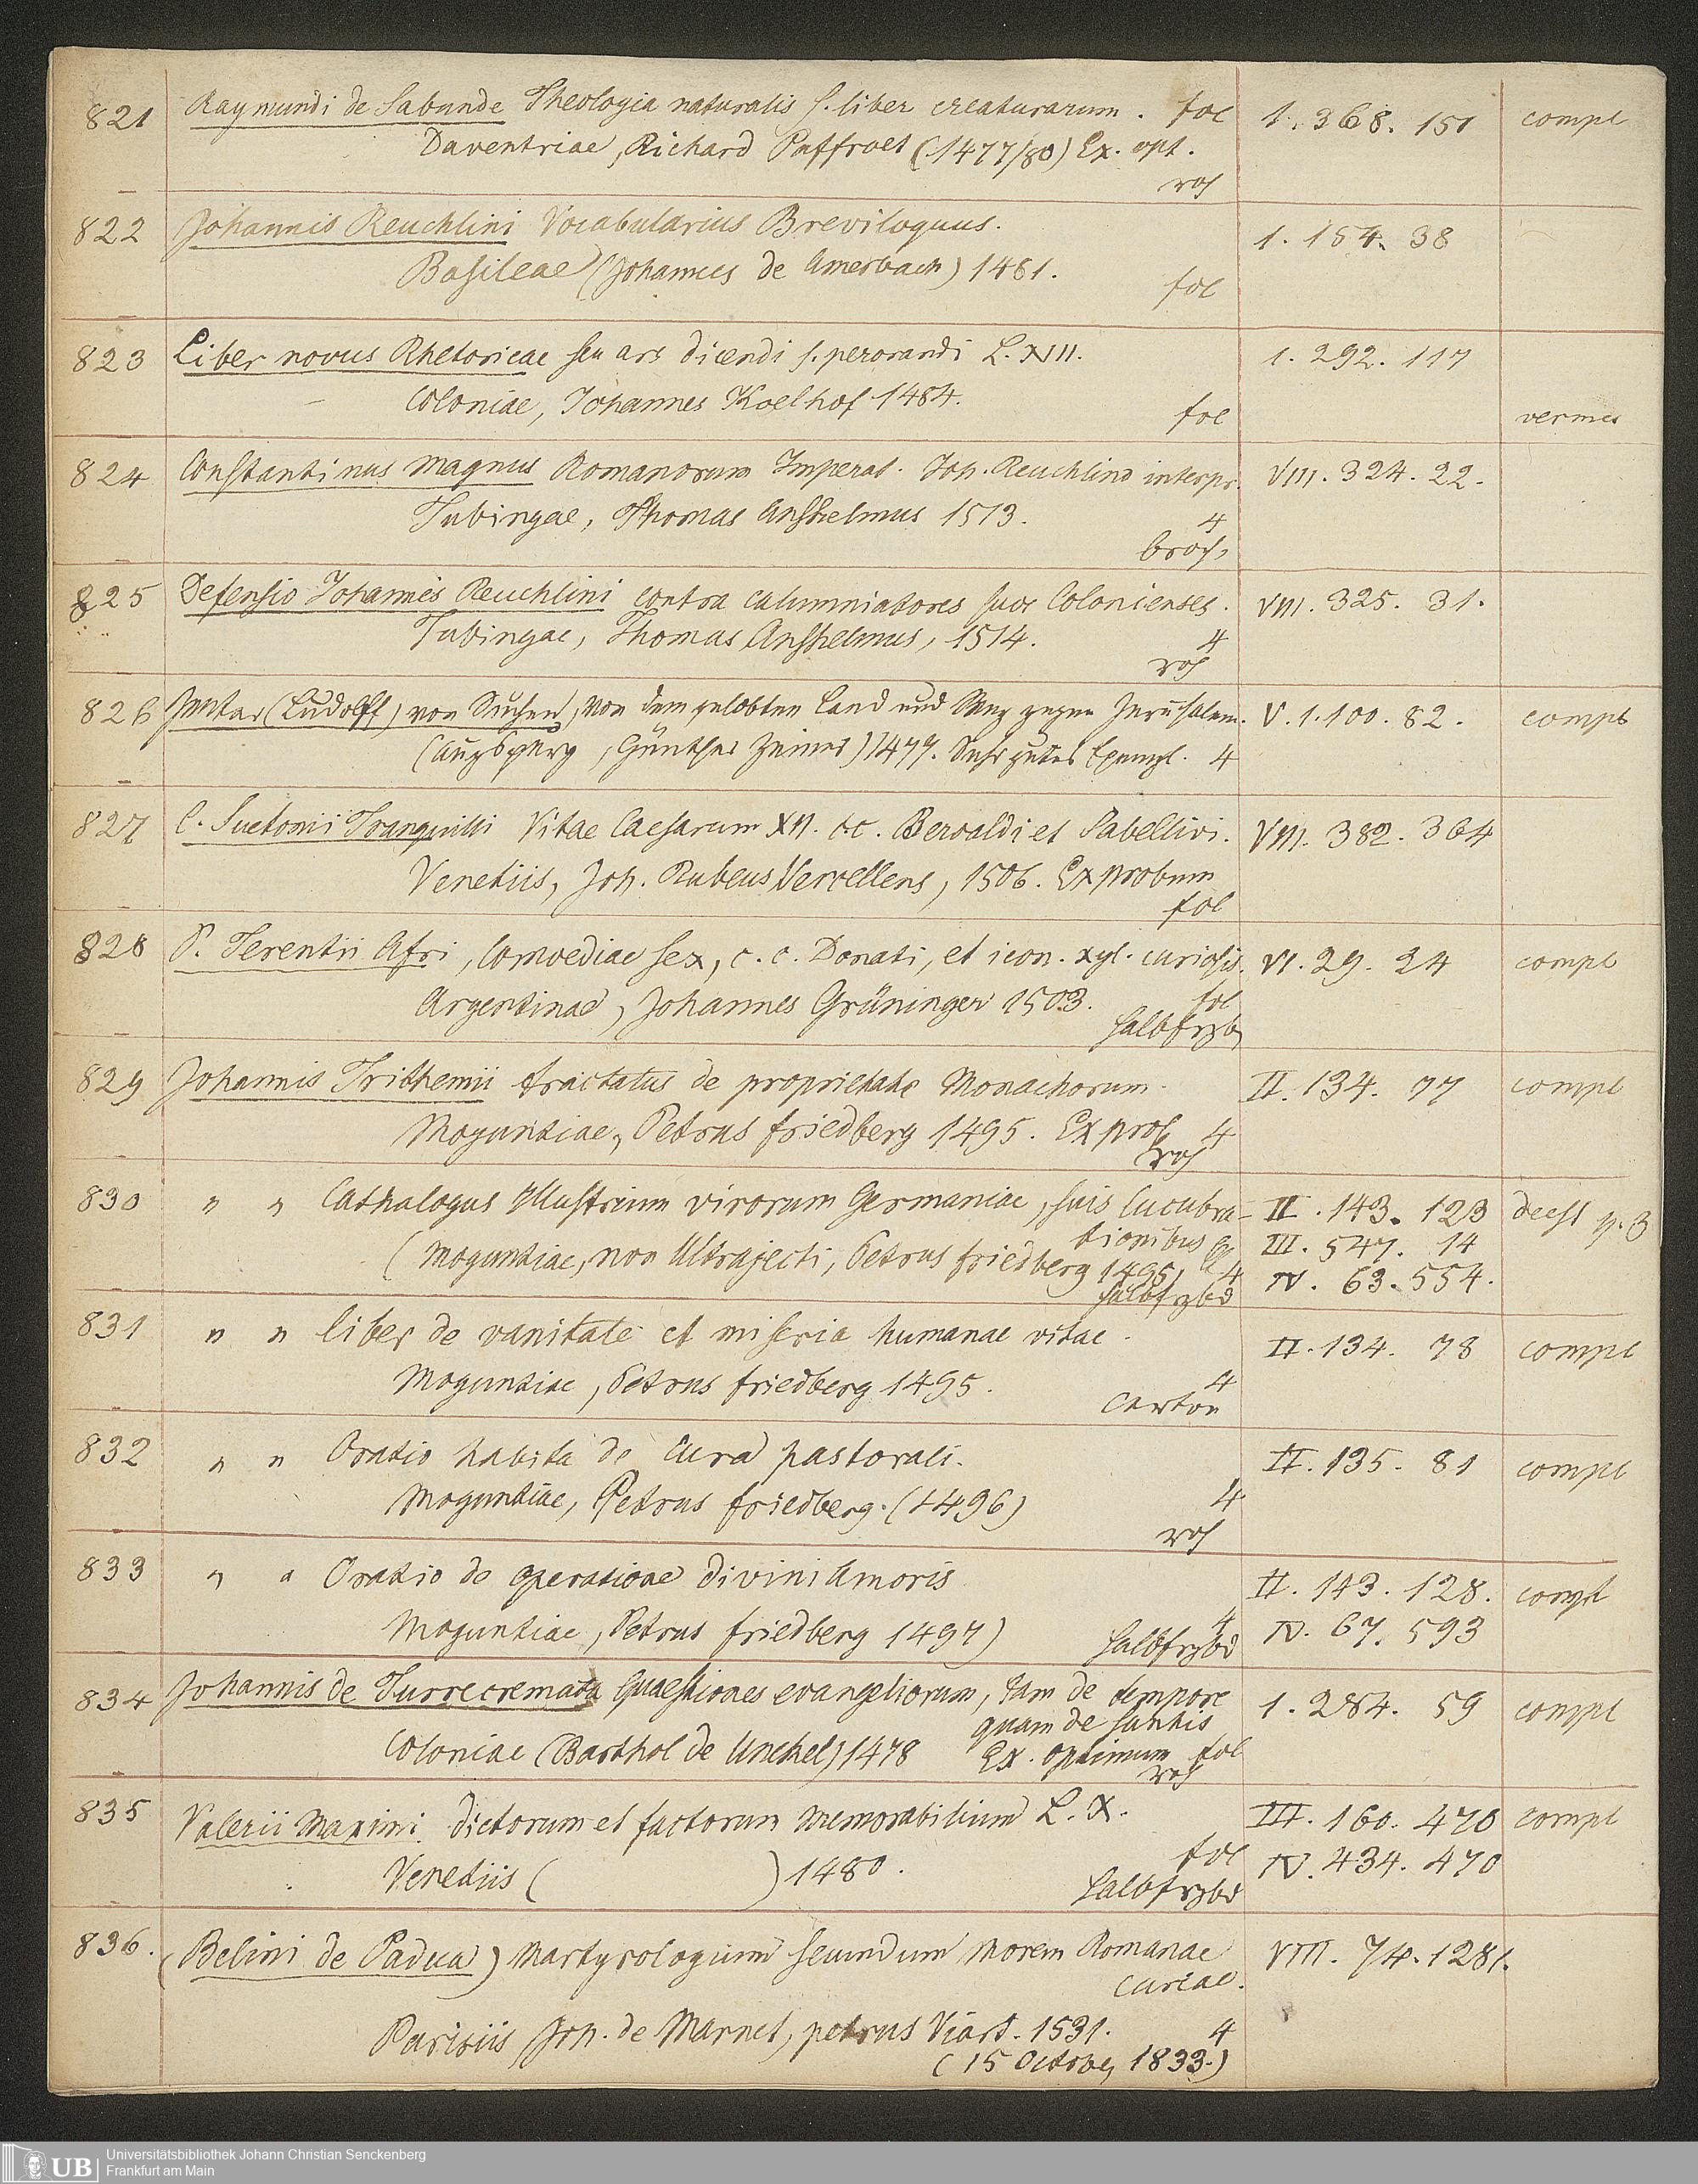 821 Raymundi de Sabunde Theologia naturalis s. liber creaturarum. fol 1. 368. 151 compl
Daventriae, Richard Paffroet (1477/80) Ex. opt.
roh
822 Johannis Reuchlini Vocabularius Breviloquus. 1. 154. 38
Basileae (Johannes de Amerbach) 1481. fol
823 Liber novus Rhetoricae seu ars dicendi s. perorandi L. XIII. 1. 292. 117
Coloniae, Johannes Koelhof 1484. fol vermes
824 Constantinus Magnus Romanorum Imperat. Joh. Reuchlino interpr. VIII. 324. 22.
Tubingae, Thomas Anshelmus 1513. 4
broch.
825 Defensio Johannis Reuchlini contra calumniatores suos Colonienses. VIII. 325. 31.
Tubingae, Thomas Anshelmus, 1514. 4
roh
826 (Ludolff) von Suchen, Von dem gelobten Land und Weg gegen Jerusalem. V. 1. 100. 82. compl
(Augspurg, Günther Zeiner) 1477. Sehr gutes Exempl. 4
827 C. Suetonii Tranquilli Vitae Caesarum XII. c.c. Beroaldi et Sabellici. VIII. 382. 364
Venetiis, Joh. Rubeus Vercellens, 1506. Ex probum
fol
828 P. Terentii Afri, Comoediae sex, c. c. Donati, et icon. xyl. curiosis. VI. 29. 24 compl
Argentinae, Johannes Grüninger 1503. fol
halbfrzb
829 Johannis Trithemii tractatus de proprietate Monachorum. II. 134. 77 compl
Moguntiae, Petrus Friedberg 1495. Ex prob 4
roh
830 " " Cathalogus illustrium virorum Germaniae, suis lucubra- II. 143. 123 deest p. 3
tionibus III. 547. 14
(Moguntiae, non Ultrajecti, Petrus Friedberg 1495) 4 IV. 63. 554.
halbfrzbd
831 " " liber de vanitate et miseria humanae vitae. II. 134. 78 compl
Moguntiae, Petrus Friedberg 1495. 4
Carton
832 " " Oratio habita de cura pastorali. II. 135. 81 compl
Moguntiae, Petrus Friedberg. (1496) 4
roh
833 " " Oratio de operatione divini Amoris II. 143. 128. compl
Moguntiae, Petrus Friedberg 1497) 4 IV. 67. 593
halbfrzbd
834 Johannis de Turrecremata Quaestiones evangeliorum, tam de tempore 1. 284. 59 compl
quam de sanctis
Coloniae (Barthol de Unckel) 1478 Ex. optimum fol
roh
835 Valerii Maximi dictorum et factorum memorabilium L. X. III. 160. 470 compl
Venetiis ( ) 1480. fol IV. 434. 470
halbfrzbd
836. (Belini de Padua) Martyrologium secundum morem Romanae VIII. 74. 1281.
curiae.
Parisiis Joh. de Marnef, petrus Viart. 1531. 4
(15 October 1833.)
UB Universitätsbibliothek Johann Christian Senckenberg
Frankfurt am Main